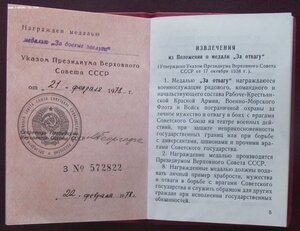 Награжден медалью
медалью „За боевые заслуги"
Указом Президиума Верховного
Совета СССР
от „21" февраля 1978 г.
З № 572822
„22" февраля 1978 г.
ИЗВЛЕЧЕНИЯ
из Положения о медали „За отвагу"
(Утверждено Указом Президиума Верховного Совета
СССР от 17 октября 1938 г.)
1. Медалью „За отвагу" награждаются
военнослужащие рядового, командного и
начальствующего состава Рабоче-Крестьян-
ской Красной Армии, Военно-Морского
Флота и Войск пограничной охраны за
личное мужество и отвагу в боях с врагами
Советского Союза на театре военных дей-
ствий, при защите неприкосновенности
государственных границ или при борьбе с
диверсантами, шпионами и прочими врагами
Советского государства.
2. Награждение медалью производится
Президиумом Верховного Совета СССР.
8. Награжденные медалью должны пода-
вать личный пример храбрости, мужества
и отваги в борьбе с врагами Советского
государства и служить образцом для других
граждан при исполнении государственных
обязанностей.
5